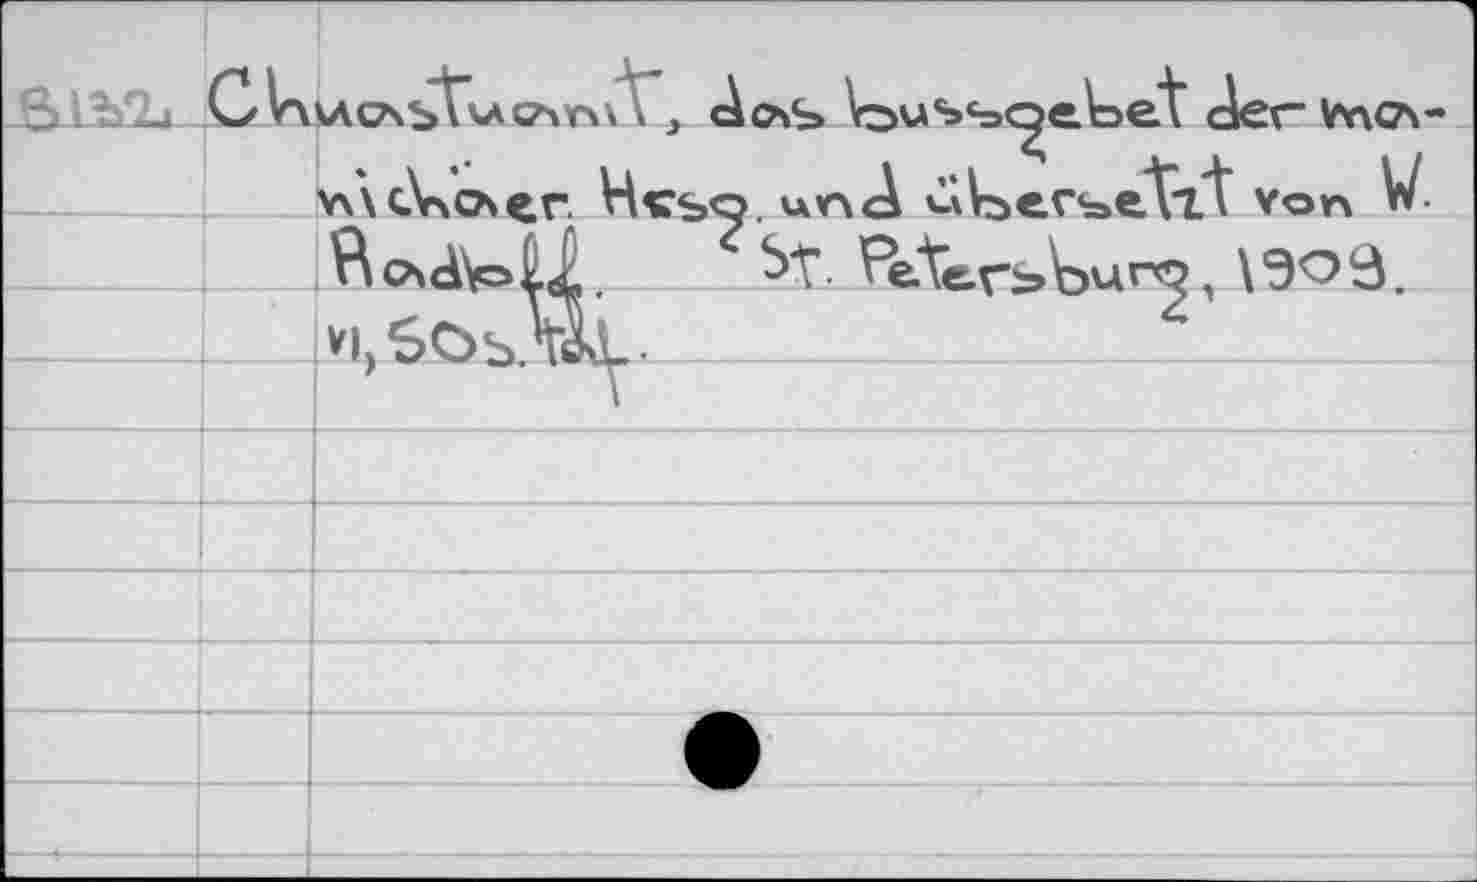 B1132, Chuastuanit, das bussgebet der ma-
nichäer. Hrsg. und übersetzt von W.
Radloff. St. Petersburg, 1909.
VI, 50s. taf.